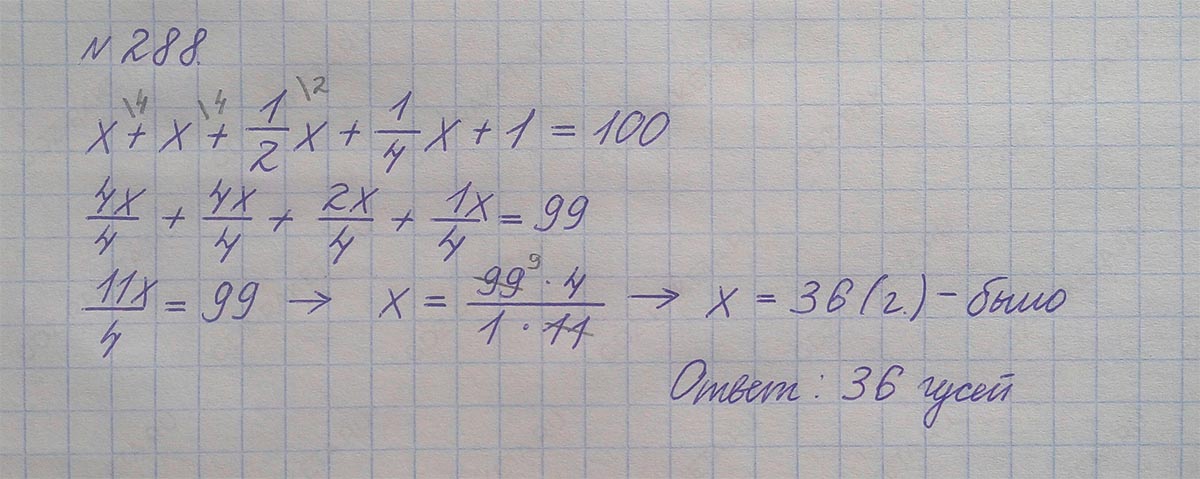 № 288.
x\4 + x\4 + 1/2 x\2 + 1/4 x + 1 = 100
4x/4 + 4x/4 + 2x/4 + 1x/4 = 99
11x/4 = 99 → x = 99⁹ · 4 / 1 · 11 → x = 36 (г.) – было
Ответ: 36 гусей